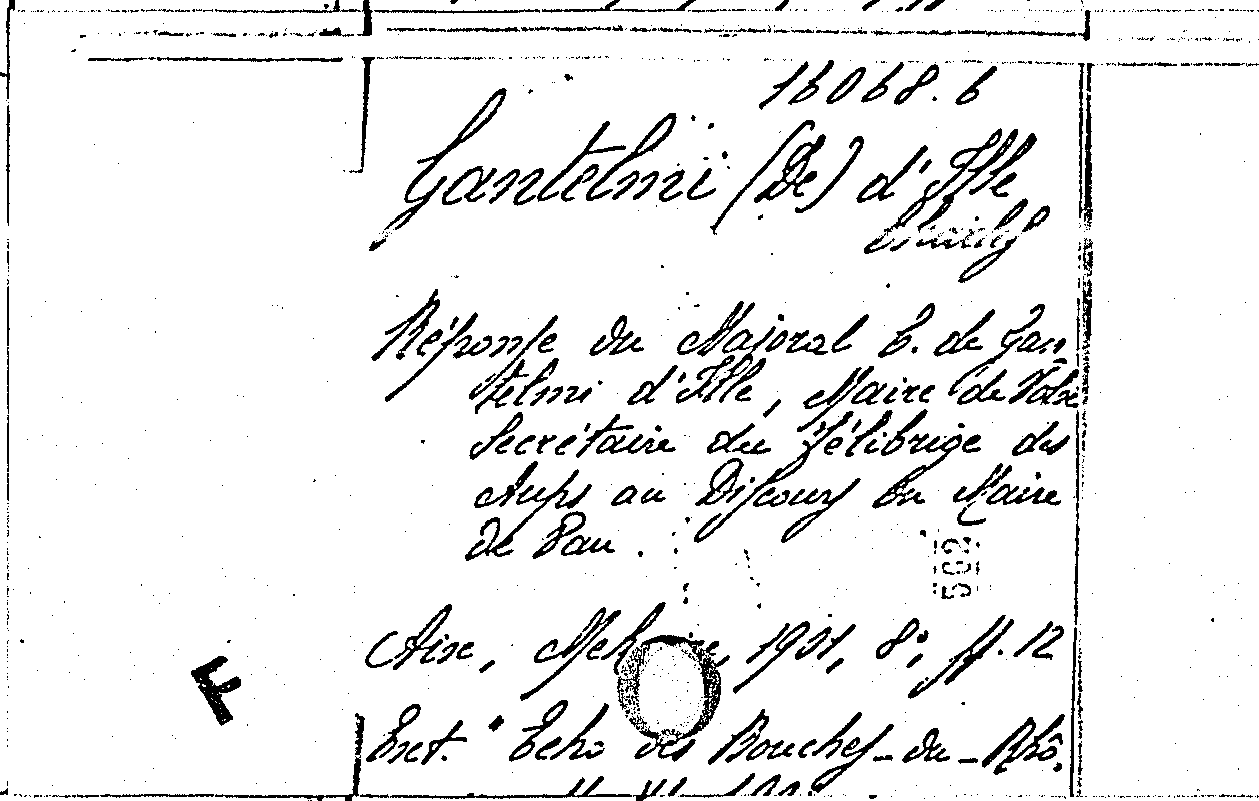 16068.6
Gantelmi (De) d'Ille
Charles
Réponse du Majoral C. de Gan
telmi d'Ille, Maire de
Secrétaire du Félibrige des
Aups au Discours du Maire
de Pau.
502
Aix, 1931, 8°, pp. 12
Ext. "Echo des Bouches-du-Rhô.
F